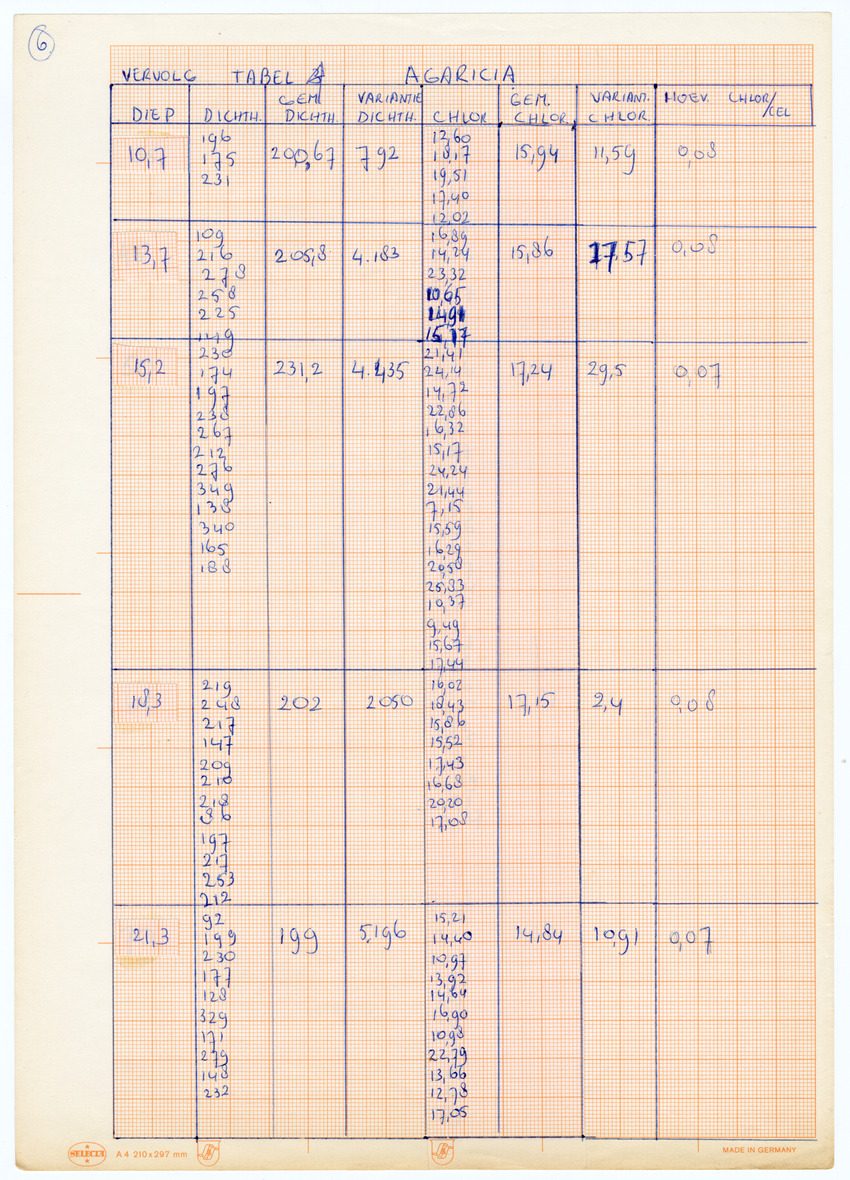 6
VERVOLG TABEL AGARICIA
DIEP DICHTH. GEM. DICHTH. VARIANTIE DICHTH. CHLOR GEM. CHLOR. VARIANT. CHLOR. HOEV. CHLOR/CEL
10,7 196 200,67 792 12,60 15,94 11,59 0,08
175 18,17
231 19,51
17,40
12,02
13,7 109 205,8 4.183 16,89 15,86 17,57 0,08
216 14,24
278 23,32
258 10,65
225 11,91
149 15,17
15,2 230 231,2 4.435 21,41 17,24 29,5 0,07
174 24,14
197 14,72
238 22,86
267 16,32
212 15,17
276 24,24
349 21,44
138 7,15
340 15,59
165 16,29
188 20,58
25,83
10,37
9,49
15,67
17,44
18,3 219 202 2050 16,02 17,15 2,4 0,08
248 18,43
217 15,86
147 15,52
209 17,43
210 16,68
218 20,20
86 17,08
197
217
253
212
21,3 92 199 5.196 15,21 14,84 10,91 0,07
199 14,40
230 10,97
177 13,92
128 14,64
329 16,90
171 10,98
279 22,79
148 13,66
232 12,78
17,05
SELECTA A4 210 x 297 mm MADE IN GERMANY